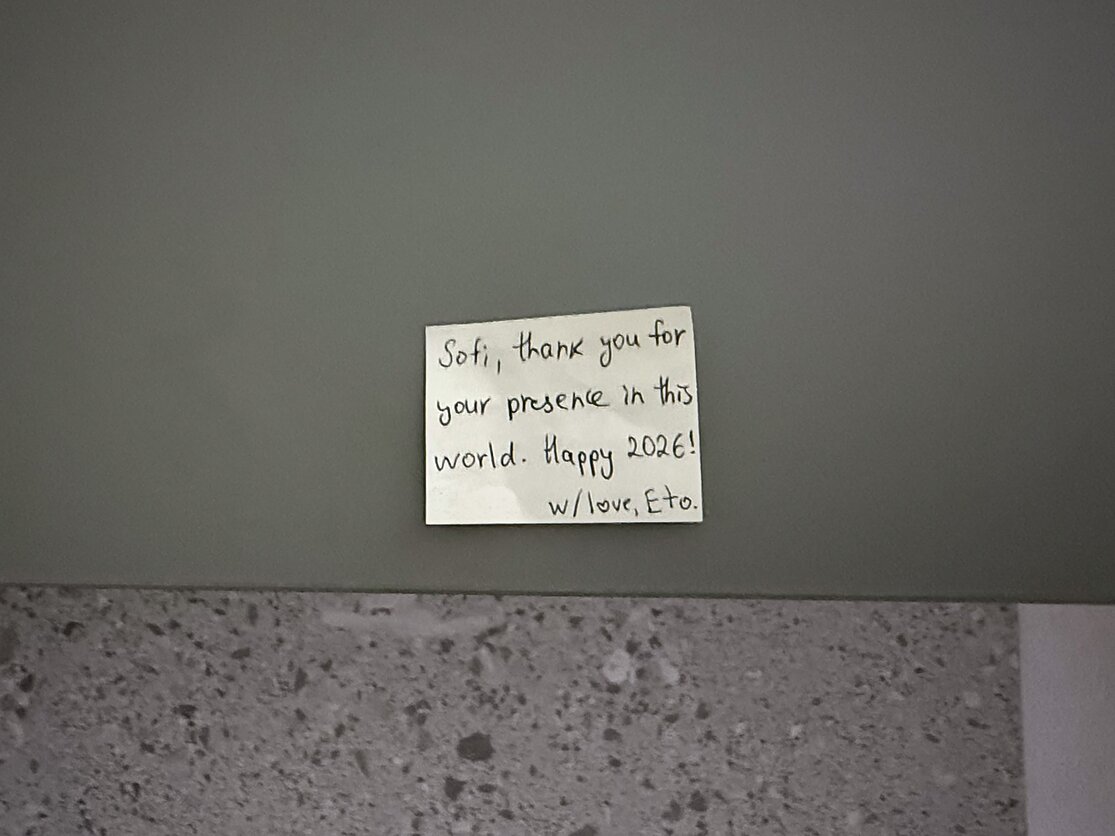 Sofi, thank you for
your presence in this
world. Happy 2026!
w/love, Eto.